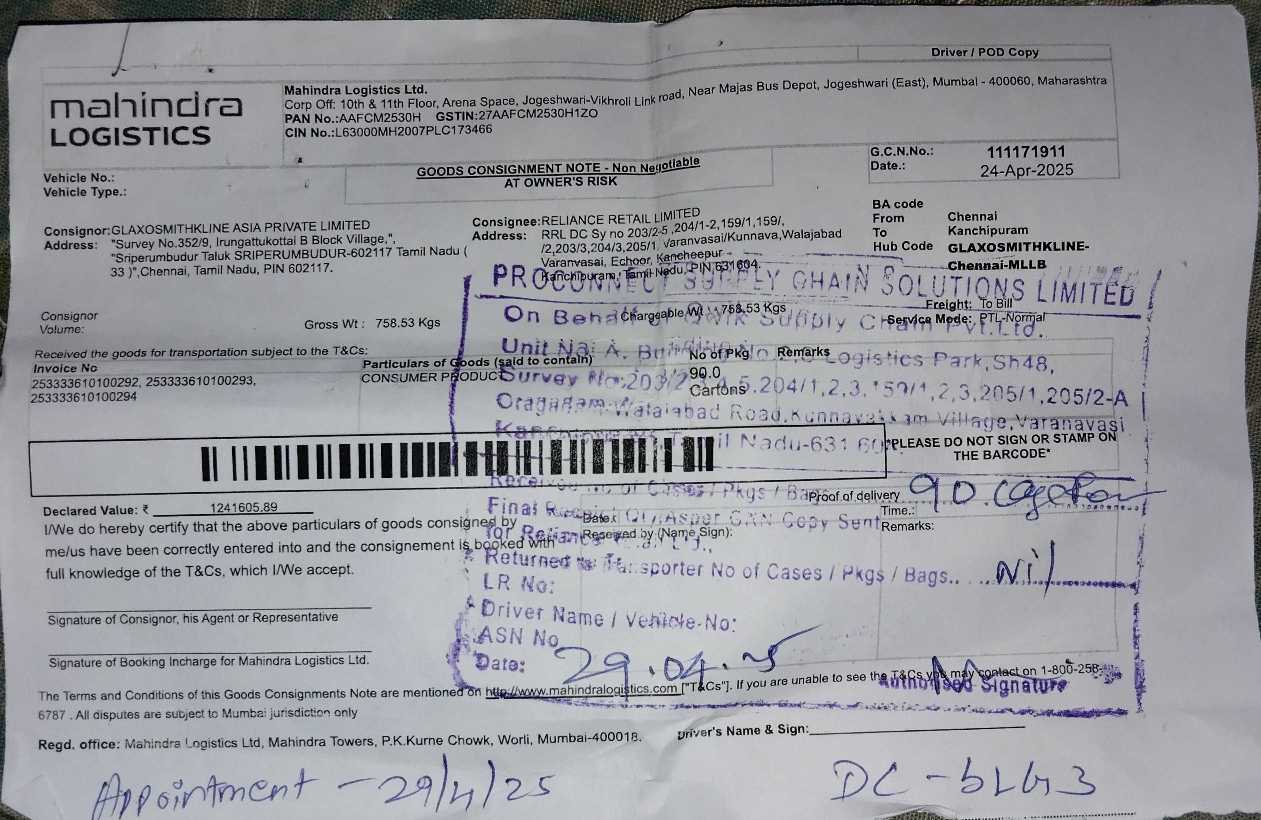 Driver / POD Copy
mahindra
LOGISTICS
Mahindra Logistics Ltd.
Corp Off: 10th & 11th Floor, Arena Space, Jogeshwari-Vikhroli Link road, Near Majas Bus Depot, Jogeshwari (East), Mumbai - 400060, Maharashtra
PAN No.:AAFCM2530H GSTIN:27AAFCM2530H1ZO
CIN No.:L63000MH2007PLC173466
Vehicle No.:
Vehicle Type.:
GOODS CONSIGNMENT NOTE - Non Negotiable
AT OWNER'S RISK
G.C.N.No.: 111171911
Date.: 24-Apr-2025
Consignor:GLAXOSMITHKLINE ASIA PRIVATE LIMITED
Address: "Survey No.352/9, Irungattukottai B Block Village,",
"Sriperumbudur Taluk SRIPERUMBUDUR-602117 Tamil Nadu (
33 )",Chennai, Tamil Nadu, PIN 602117.
Consignee:RELIANCE RETAIL LIMITED
Address: RRL DC Sy no 203/2-5 ,204/1-2,159/1,159/,
/2,203/3,204/3,205/1, Varanvasai/Kunnava,Walajabad
Varanvasai, Echoor, Kancheepur
Kanchipuram, Tamil Nadu, PIN 631604.
BA code
From Chennai
To Kanchipuram
Hub Code GLAXOSMITHKLINE-
Chennai-MLLB
PROCONNECT SUPPLY CHAIN SOLUTIONS LIMITED
Consignor
Volume:
Gross Wt : 758.53 Kgs
Chargeable Wt : 758.53 Kgs
Freight: To Bill
Service Mode: PTL-Normal
On Behalf of Qwik Supply Chain Pvt.Ltd.
Received the goods for transportation subject to the T&Cs:
Invoice No
253333610100292, 253333610100293,
253333610100294
Particulars of Goods (said to contain)
CONSUMER PRODUCT
No of Pkg
90.0
Cartons
Remarks
Unit No. A, Building No. Logistics Park,Sh48,
Survey No.203/ 5.204/1,2,3, 159/1,2,3,205/1,205/2-A
Oragadam-Walajabad Road,Kunnavakkam Village,Varanavasi
Tamil Nadu-631 60
*PLEASE DO NOT SIGN OR STAMP ON
THE BARCODE*
Received No of Cases / Pkgs / Bags
Proof of delivery
90
Declared Value: ₹ 1241605.89
Final Qty Asper GRN Copy Sent
Date.:
Time.:
for Reliance Ltd.,
Received by (Name Sign):
Remarks:
I/We do hereby certify that the above particulars of goods consigned by
me/us have been correctly entered into and the consignement is booked with
full knowledge of the T&Cs, which I/We accept.
Returned to Transporter No of Cases / Pkgs / Bags.. Nil
LR No:
Driver Name / Vehicle-No:
ASN No
Date: 29.04.25
Signature of Consignor, his Agent or Representative
Signature of Booking Incharge for Mahindra Logistics Ltd.
Authorised Signature
The Terms and Conditions of this Goods Consignments Note are mentioned on http://www.mahindralogistics.com ["T&Cs"]. If you are unable to see the T&Cs you may contact on 1-800-258-
6787 . All disputes are subject to Mumbai jurisdiction only
Regd. office: Mahindra Logistics Ltd, Mahindra Towers, P.K.Kurne Chowk, Worli, Mumbai-400018.
Driver's Name & Sign:
Appointment - 29/4/25
DC - bLG3